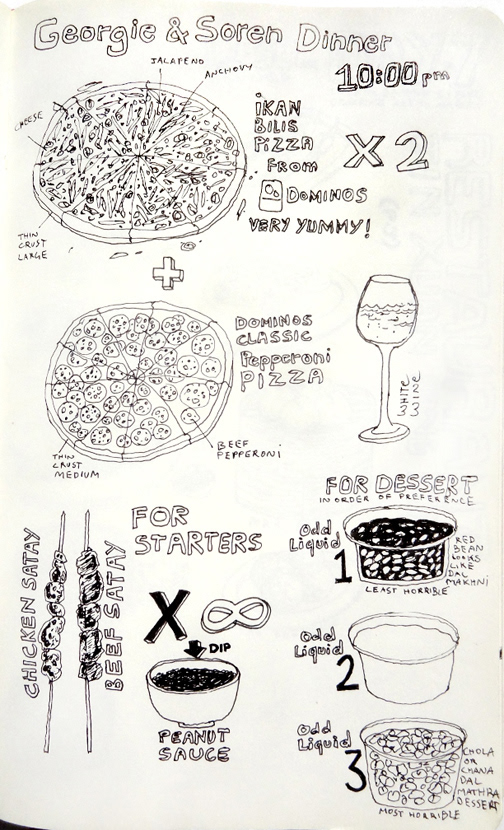 Georgie & Soren Dinner
10:00pm
JALAPENO
ANCHOVY
CHEESE
THIN
CRUST
LARGE
iKAN
BILIS
PiZZA
FROM
DOMINOS
VERY YUMMY!
X 2
+
DOMINOS
CLASSIC
Pepperoni
PIZZA
BEEF
PEPPERONi
THIN
CRUST
MEDIUM
WHITE
WINE
FOR
STARTERS
CHICKEN SATAY
BEEF SATAY
X ∞
DIP
PEANUT
SAUCE
FOR DESSERT
IN ORDER OF PREFERENCE
Odd
Liquid
1
RED
BEAN
LOOKS
LIKE
DAL
MAKHNI
LEAST HORRIBLE
Odd
Liquid
2
Odd
Liquid
3
CHOLA
OR
CHANA
DAL
MATHRA
DESSERT
MOST HORRIBLE